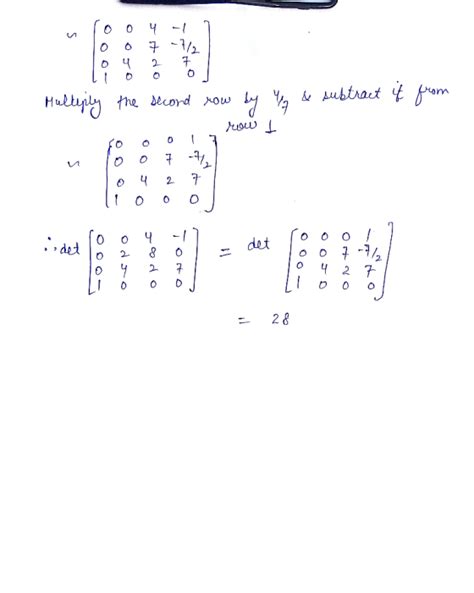 ~ [0 0 4 -1
0 0 7 -7/2
0 4 2 7
1 0 0 0]
Multiply the second row by 4/7 & subtract it from
row 1
~ [0 0 0 1
0 0 7 -7/2
0 4 2 7
1 0 0 0]
∴ det [0 0 4 -1
0 2 8 0
0 4 2 7
1 0 0 0] = det [0 0 0 1
0 0 7 -7/2
0 4 2 7
1 0 0 0]
= 28